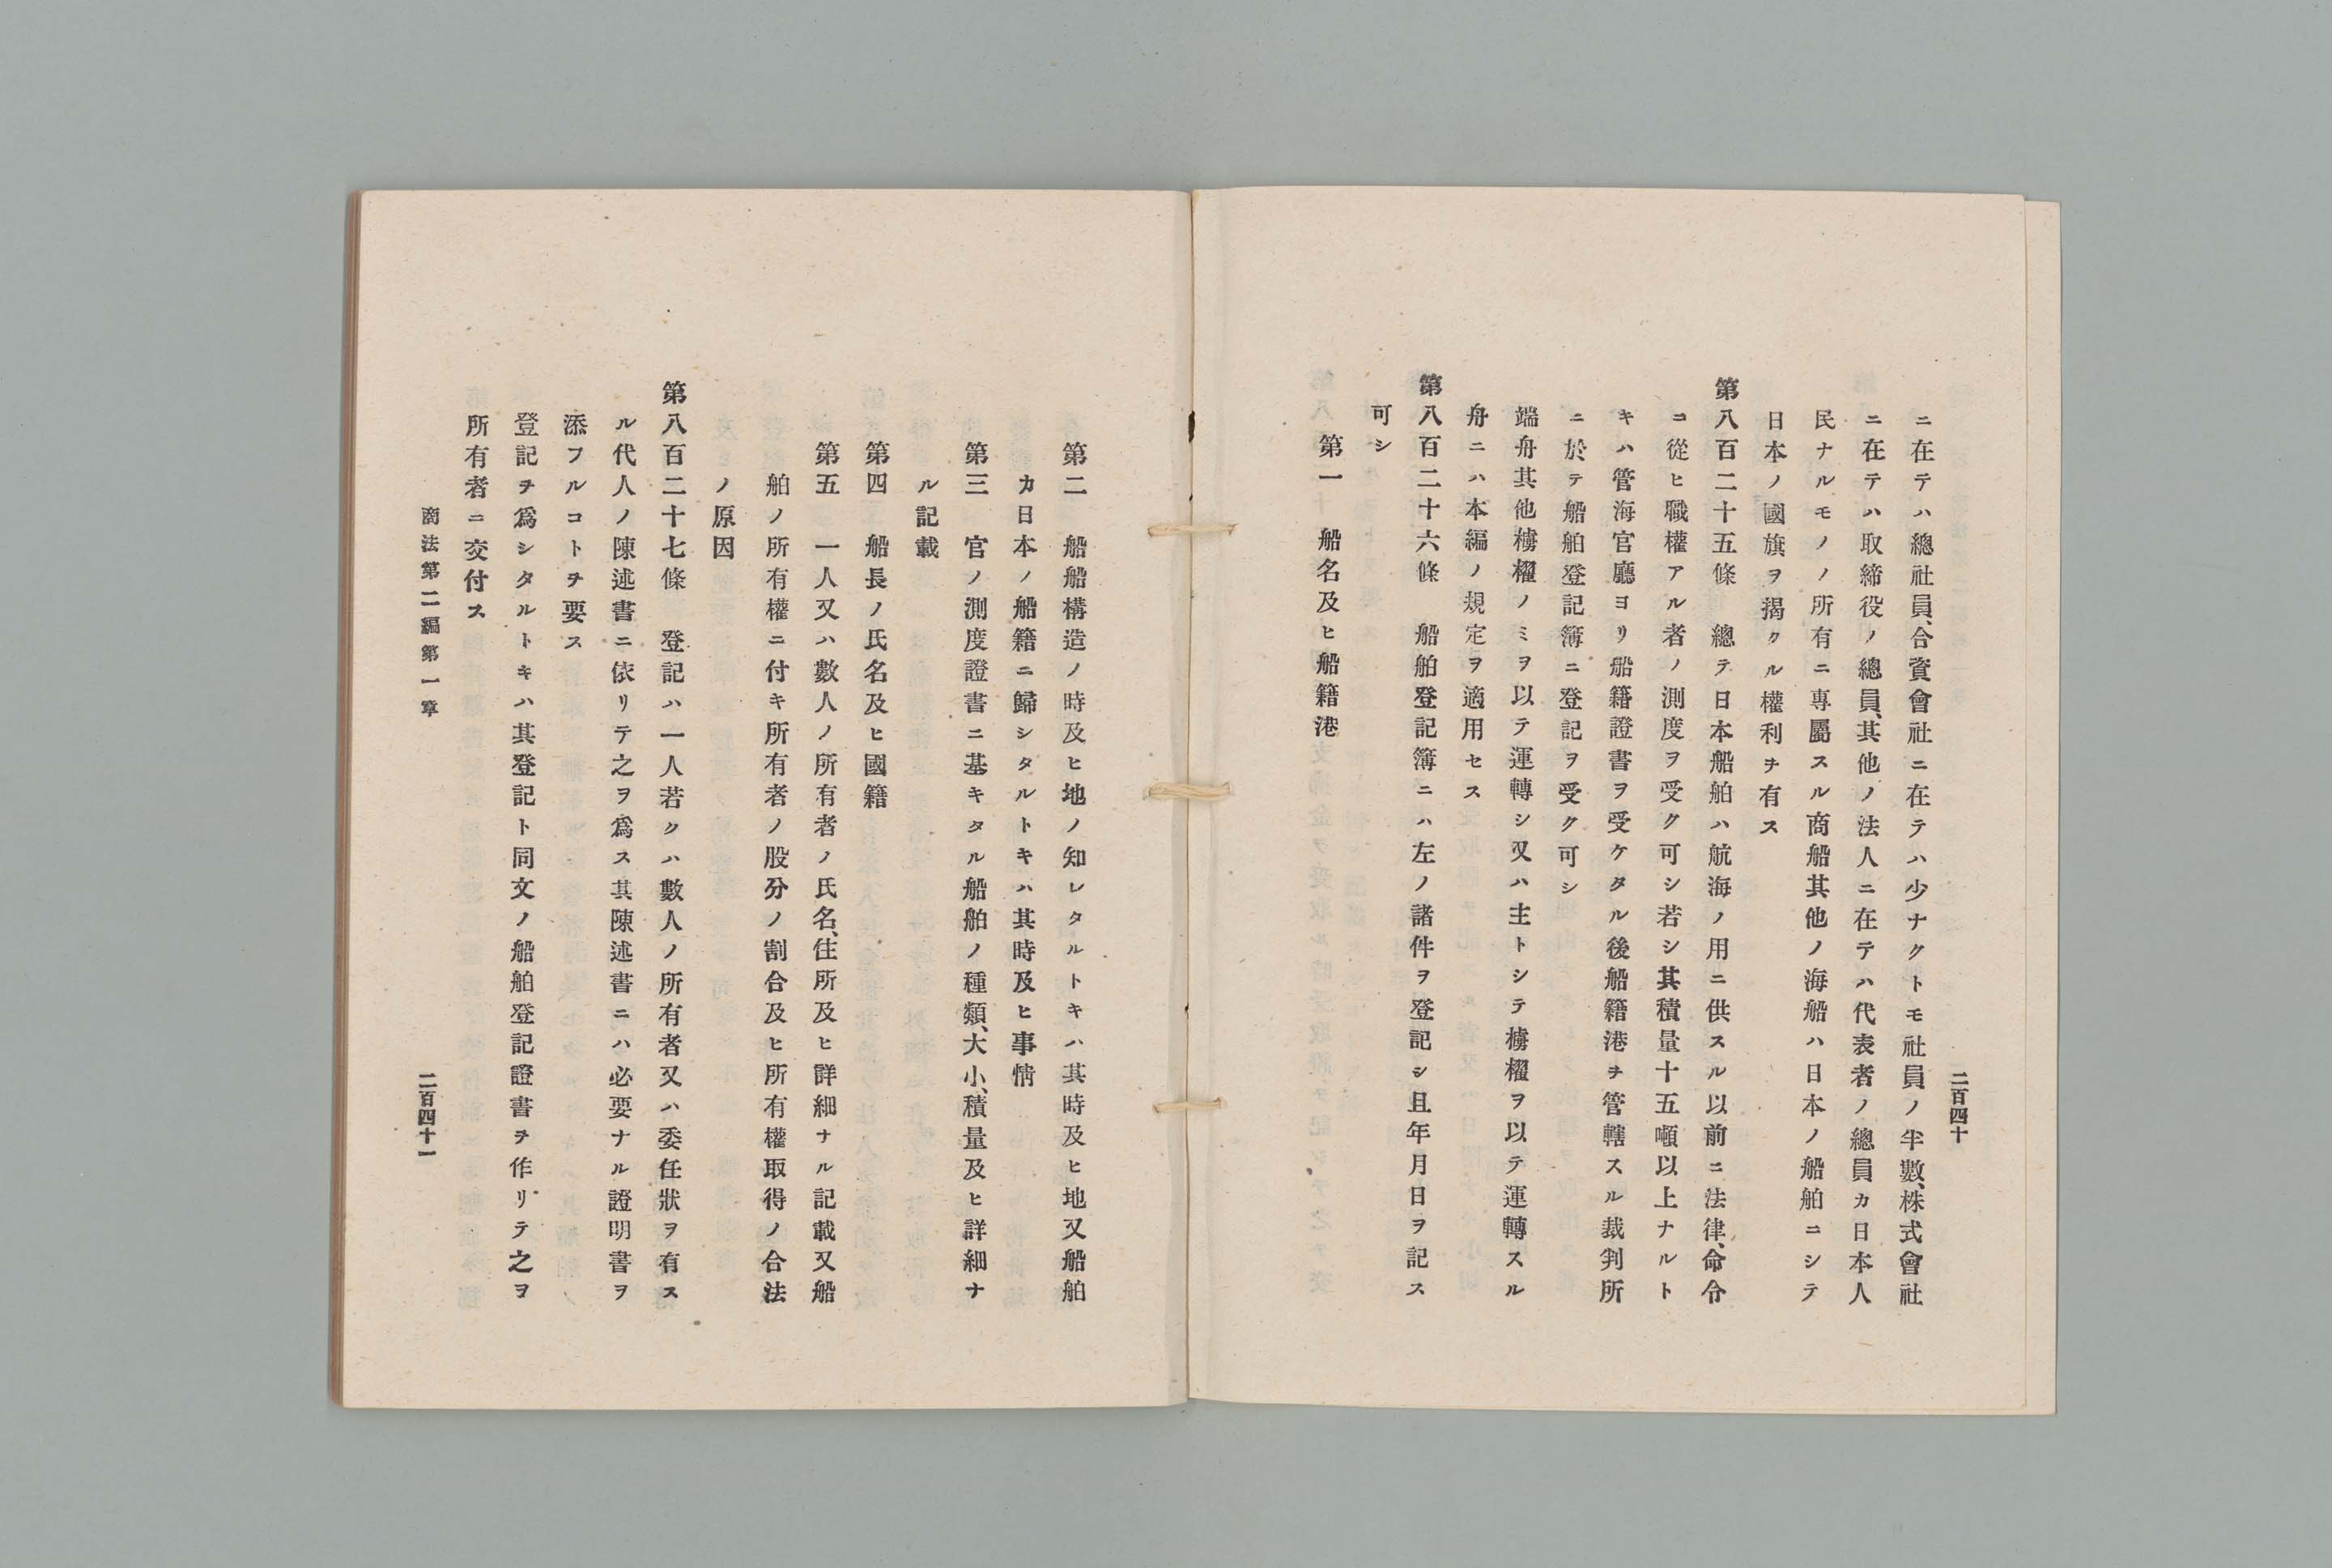 二百四十
ニ在テハ總社員、合資會社ニ在テハ少ナクトモ社員ノ半數、株式會社
ニ在テハ取締役ノ總員、其他ノ法人ニ在テハ代表者ノ總員カ日本人
民ナルモノノ所有ニ專屬スル商船其他ノ海船ハ日本ノ船舶ニシテ
日本ノ國旗ヲ揭クル權利ヲ有ス
第八百二十五條 總テ日本船舶ハ航海ノ用ニ供スル以前ニ法律、命令
ニ從ヒ職權アル者ノ測度ヲ受ク可シ若シ其積量十五噸以上ナルト
キハ管海官廳ヨリ船籍證書ヲ受ケタル後船籍港ヲ管轄スル裁判所
ニ於テ船舶登記簿ニ登記ヲ受ク可シ
端舟其他櫓櫂ノミヲ以テ運轉シ又ハ主トシテ櫓櫂ヲ以テ運轉スル
舟ニハ本編ノ規定ヲ適用セス
第八百二十六條 船舶登記簿ニハ左ノ諸件ヲ登記シ且年月日ヲ記ス
可シ
第一 船名及ヒ船籍港
第二 船舶構造ノ時及ヒ地ノ知レタルトキハ其時及ヒ地又船舶
カ日本ノ船籍ニ歸シタルトキハ其時及ヒ事情
第三 官ノ測度證書ニ基キタル船舶ノ種類、大小、積量及ヒ詳細ナ
ル記載
第四 船長ノ氏名及ヒ國籍
第五 一人又ハ數人ノ所有者ノ氏名、住所及ヒ詳細ナル記載又船
舶ノ所有權ニ付キ所有者ノ股分ノ割合及ヒ所有權取得ノ合法
ノ原因
第八百二十七條 登記ハ一人若クハ數人ノ所有者又ハ委任狀ヲ有ス
ル代人ノ陳述書ニ依リテ之ヲ爲ス其陳述書ニハ必要ナル證明書ヲ
添フルコトヲ要ス
登記ヲ爲シタルトキハ其登記ト同文ノ船舶登記證書ヲ作リテ之ヲ
所有者ニ交付ス
商法第二編第一章
二百四十一